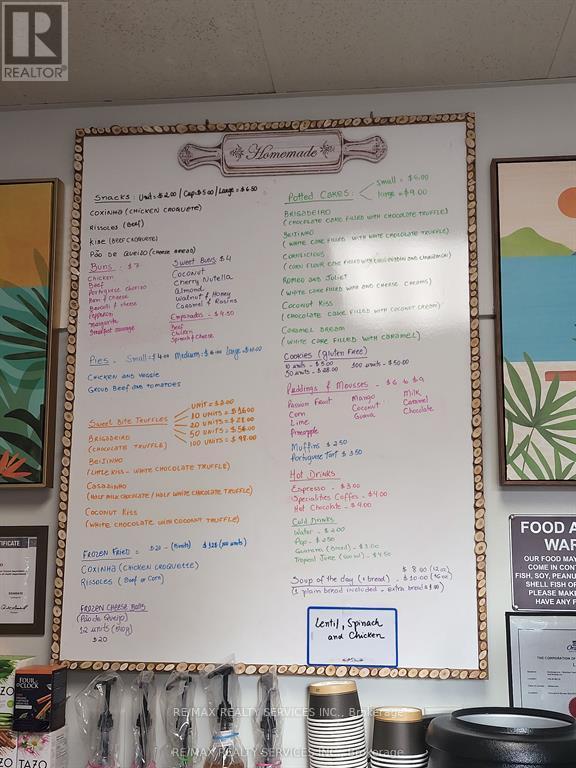 REALTOR®
Homemade
Snacks: Unit=$2.00 / Cup=$5.00 / Large=$6.50
COXINHA (CHICKEN CROQUETE)
RISSOLES (BEEF)
KIBE (BEEF CROQUETE)
PÃO DE QUEIJO (CHEESE BREAD)
Buns - $7
Chicken
Beef
Portuguese chorizo
Ham & cheese
Brocolli & cheese
Pepperoni
Margarita
Breakfast sausage
Sweet Buns $4
Coconut
Cherry Nutella
Almond
Walnut & Honey
Caramel & Raisins
Empanadas - $4.50
Beef
Chicken
Spinach & Cheese
Pies - Small=$4.00 Medium=$6.00 large $10.00
CHICKEN AND VEGGIE
GROUD BEEF AND TOMATOES
Sweet Bite Truffles
UNIT = $2.00
10 UNITS = $16.00
20 UNITS = $28.00
50 UNITS = $56.00
100 UNITS = $98.00
BRIGADEIRO
(CHOCOLATE TRUFFLE)
BEIJINHO
(LITTLE KISS - WHITE CHOCOLATE TRUFFLE)
CASADINHO
(HALF MILK CHOCOLATE / HALF WHITE CHOCOLATE TRUFFLE)
COCONUT KISS
(WHITE CHOCOLATE WITH COCONUT TRUFFLE)
FROZEN FRIED =
COXINHA (CHICKEN CROQUETTE)
RISSOLES (BEEF OR CORN)
FROZEN CHEESE BALLS
(Pão de Queijo)
12 units
$20
Potted Cakes:
small = $6.00
large = $9.00
BRIGADEIRO
(CHOCOLATE CAKE FILLED WITH CHOCOLATE TRUFFLE)
BEIJINHO
(WHITE CAKE FILLED WITH WHITE CHOCOLATE TRUFFLE)
CORNLICIOUS
(CORN FLOUR CAKE FILLED WITH CORN PUDDIN AND CINNAMON)
ROMEO AND JULIET
(WHITE CAKE FILLED WITH AND CHEESE CREAMS)
COCONUT KISS
(CHOCOLATE CAKE FILLED WITH COCONUT CREAM)
CARAMEL DREAM
(WHITE CAKE FILLED WITH CARAMEL)
COOKIES (Gluten Free)
10 units - $5.00 100 units - $50.00
50 units - $28.00
Puddings & Mousses - $6 to $9
Passion Fruit
Corn
Lime
Pineapple
Mango
Coconut
Guava
Milk
Caramel
Chocolate
Muffins $2.50
Portuguese Tart $3.50
Hot Drinks
Espresso - $3.00
Specialities Coffes - $4.00
Hot Chocolate - $4.00
Cold Drinks
Water - $2.00
Pop - 2.50
Guarana (Brazil) - $3.00
Tropical Juice - $4.50
Soup of the day (+ bread)
$8.00 (12oz)
$10.00 (16oz)
(1 plain bread included - extra bread $1.00)
Lentil, Spinach
and Chicken
FOOD A
WAR
OUR FOOD MAY
COME IN CONT
FISH, SOY, PEANU
SHELL FISH O
PLEASE MAKE
HAVE ANY F
THE CORPORATION OF
FOUR
O'CLOCK
TAZO
RE/MAX REALTY SERVICES INC., Brokerage
RE/MAX REALTY SERVICES INC., Brokerage